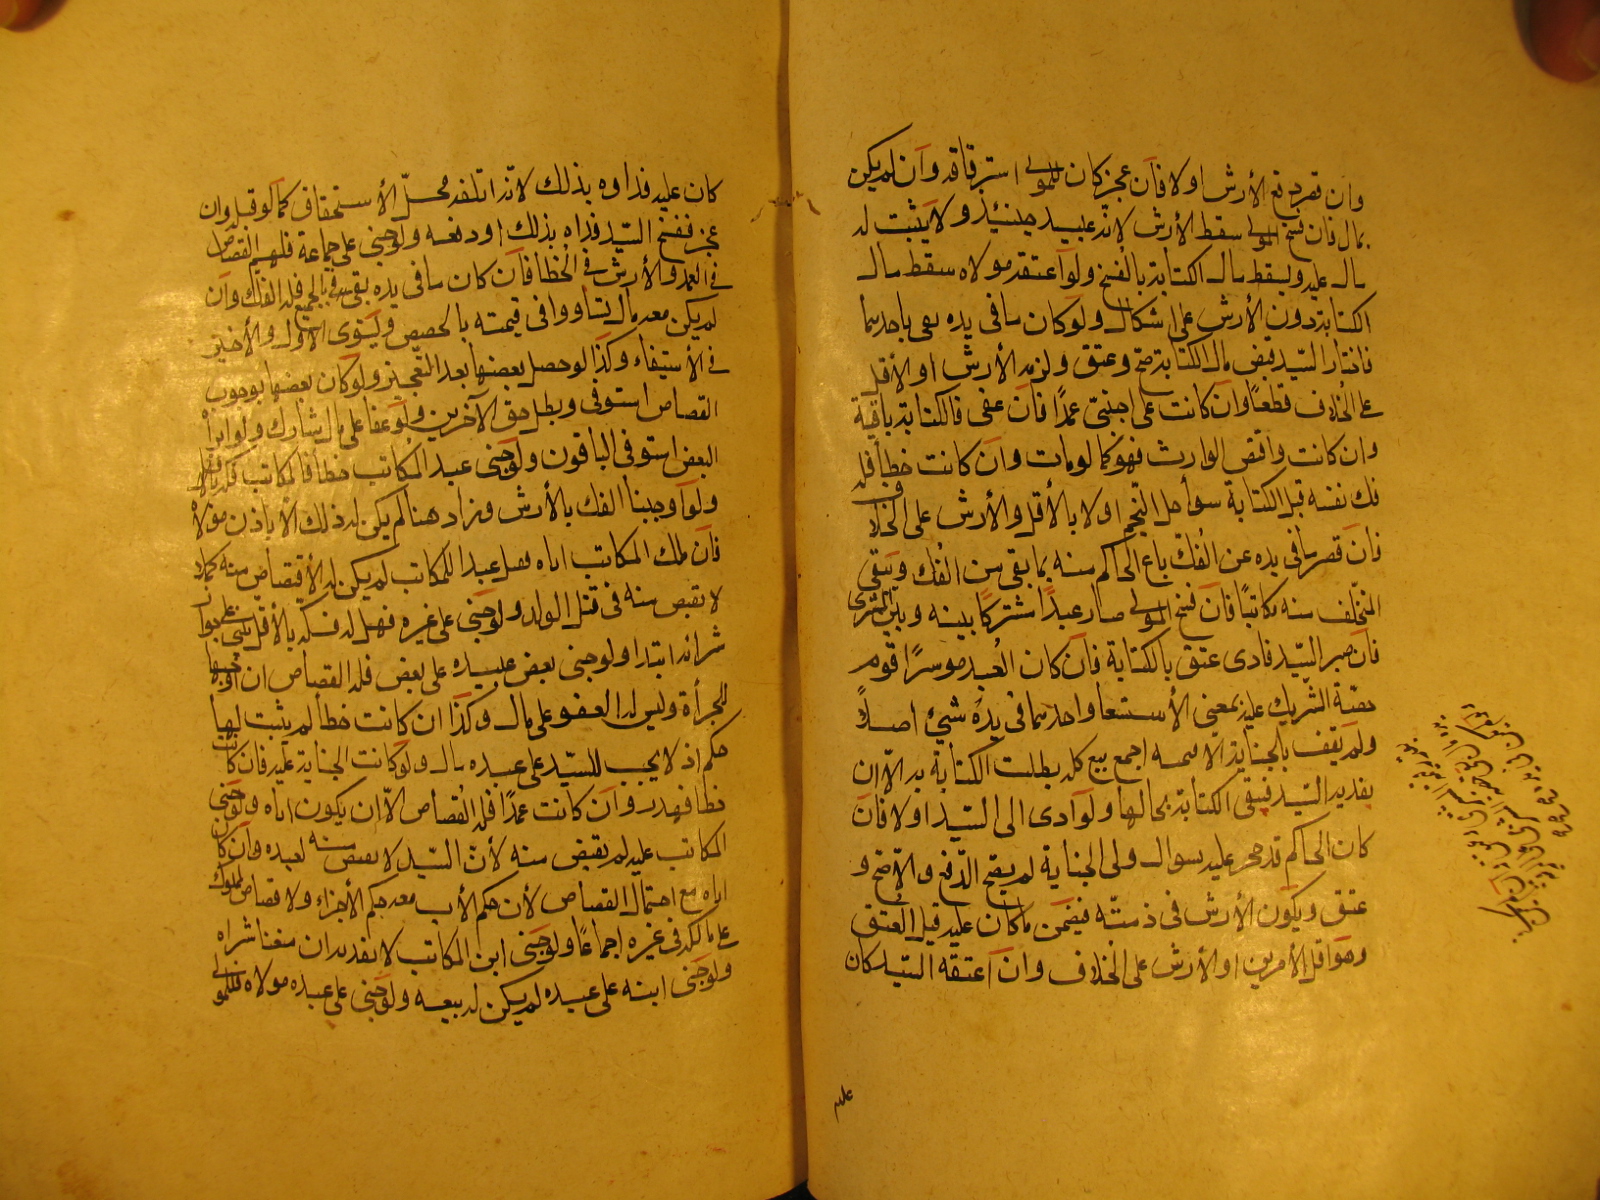 وان قصر دفع الأرش اولا فآن عجز كان للمولى استرقاقه وآن لم يكن
بمال فان فسخ المولى سقط الأرش لانه عبيد حينئذ ولا يثبت له
مال عليه ويسقط مال الكتابة بالفسخ ولو آعتقه مولاه سقط مال
الكتابة دون الأرش على اشكال ولو كان ما فى يده يفى باحدهما
فاختار السيّد قبض مال الكتابة صح وعتق ولزمه الأرش او الأقل
على الخلاف قطعًا وآن كانت على اجنبىّ عمدًا فآن عفى فالكتابة باقية
وان كانت واقتص الوارث فهو كما لو مات وآن كانت خطأ فله
فك نفسه قبل الكتابة سوأ حل النّجم او لا بالأقل والأرش على الخلاف
فآن قصر ما فى يده عن الفك باع الحاكم منه بما بقى من الفك ويبقى
المتخلف منه مكاتبًا فآن فسخ المولى صار عبدًا مشتركًا بينه وبين المشترى
فآن صبر السّيد فادى عتق بالكتابة فآن كان العبد موسرًا قوم
حصّة الشريك عليه بمعنى الأستسعا واحد مما فى يده شيئ اصلاً
ولم يقف بالجناية الا قسمه اجمع بيع كله بطلت الكتابة به الاّ ان
يفديه السّيد فيبقى الكتابة بحالها ولو آدى الى السّيد اولا فآن
كان الحاكم قد حجر عليه سوال ولى الجناية لم يصح الدّفع والآصح و
عتق ويكون الأرش فى ذمّته فيضمن ما كان عليه قبل العتق
وهو اقل الأمرين او الأرش على الخلاف وان آعتقه السّيد كان
عليه
كان عليه فداوه بذلك لانه اتلفه محلّ الأستحقاق كما لو قتل وان
عجز ففسخ السّيد فداه بذلك او دفعه ولو جنى على جماعة فلهم القصاص
فى العمد والأرش فى الخطأ فآن كان ما فى يده يفى بالجميع فله الفك وآن
لم يكن معه مال تساووا فى قيمته بالحصص ويستوى الاول والأخير
فى الأستيفاء وكذا لو حصل بعضها بعد التعجيز ولو كان بعضها يوجب
القصاص استوفى وبطل حق الآخرين ولو عفا على مال شارك ولو ابرأ
البعض استوفى الباقون ولو جنى عبد المكاتب خطأ فالمكاتب فكه بالأقل
ولو آوجبنا الفك بالأرش وزاد هنا لم يكن له ذلك الا باذن مولاه
فآن ملك المكاتب اباه فقتل عبدا للمكاتب لم يكن له الأقتصاص منه كما
لا يقتص منه فى قتل الولد ولو جنى على غيره فهل له فكه بالأقل
شرائه ابتدا ولو جنى بعض عبيده على بعض فله القصاص ان
للجرأة وليس له العفو على مال وكذا ان كانت خطأ لم يثبت لها
حكم اذ لا يجب للسيّد على عبده مال ولو كانت الجناية عليه فان كانت
خطا فهدر وآن كانت عمدًا فله القصاص الاّ ان يكون اباه ولو جنى
المكاتب عليه لم يقتص منه لأن السّيد لا يقتص منه لعبده وآن كان
اباه مع احتمال القصاص لأن حكم الأب معه حكم الأجزاء ولا قصاص لمملوك
على مالكه فى غيره اجماعًا ولو جنى ابن المكاتب لا يفديه ان منعنا شراه
ولو جنى ابنه على عبده لم يكن له بيعه ولو جنى على عبده مولاه فللمولى